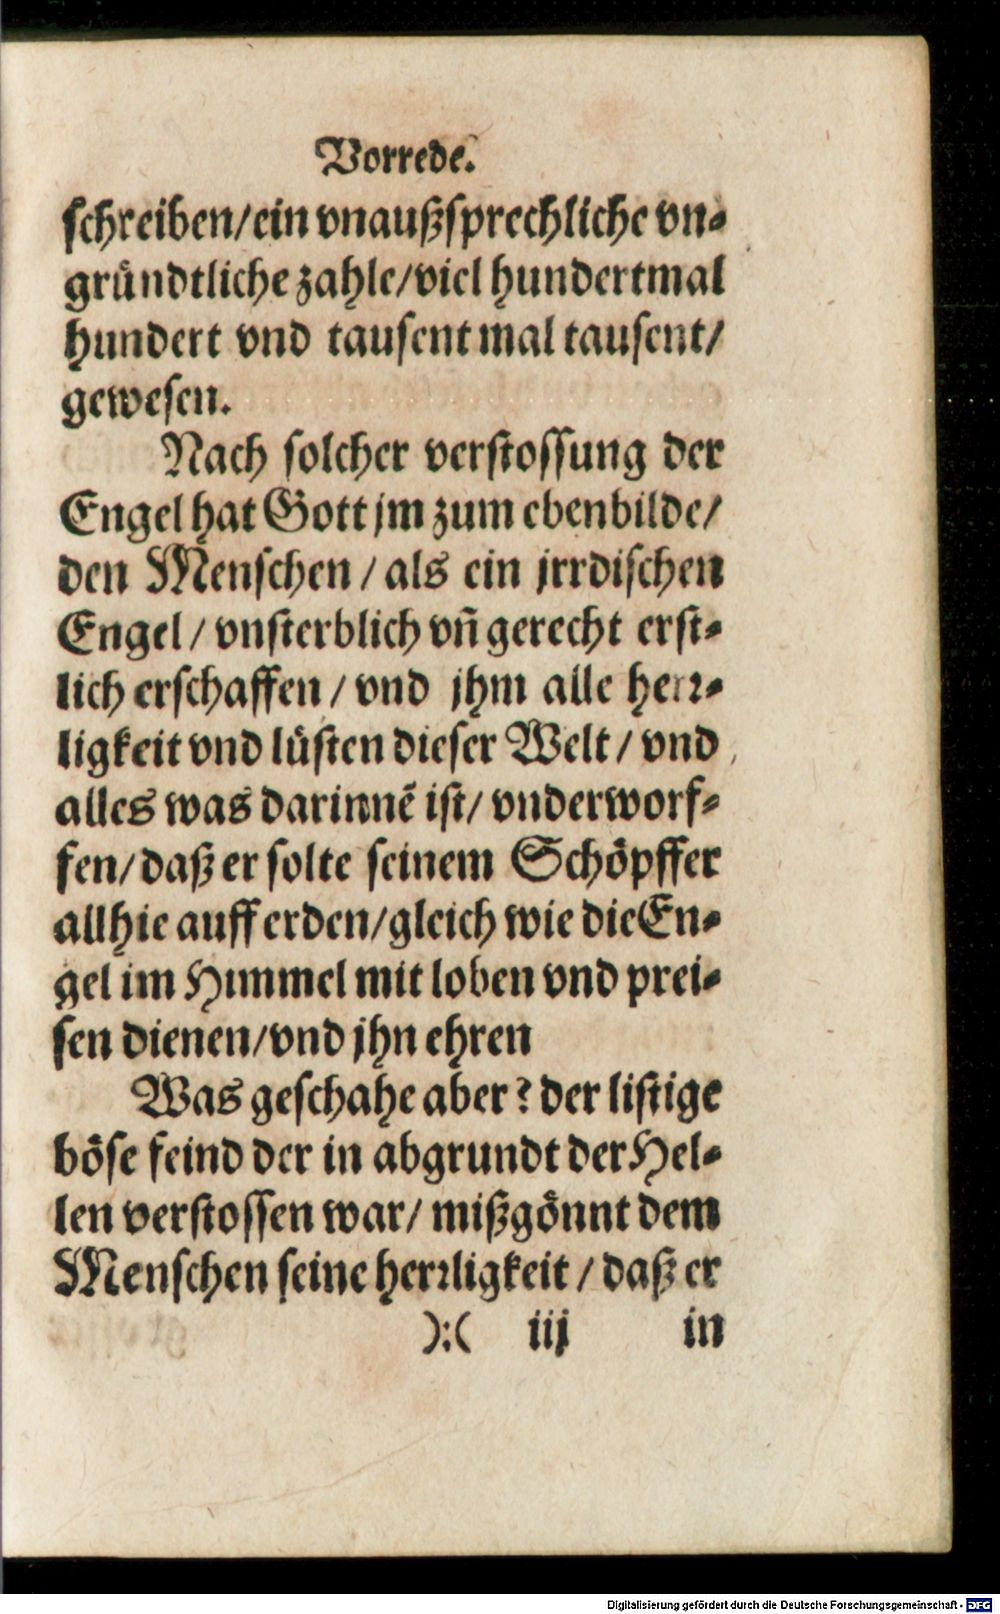 Vorrede.
schreiben/ein vnaußsprechliche vn⸗
gründtliche zahle/viel hundertmal
hundert vnd tausent mal tausent/
gewesen.
Nach solcher verstossung der
Engel hat Gott jm zum ebenbilde/
den Menschen / als ein jrrdischen
Engel / vnsterblich vñ gerecht erst⸗
lich erschaffen / vnd jhm alle herꝛ⸗
ligkeit vnd lüsten dieser Welt / vnd
alles was darinnẽ ist/ vnderworf⸗
fen/daß er solte seinem Schöpffer
allhie auff erden/gleich wie die En⸗
gel im Himmel mit loben vnd prei⸗
sen dienen/vnd jhn ehren
Was geschahe aber? der listige
böse feind der in abgrundt der Hel⸗
len verstossen war/ mißgönnt dem
Menschen seine herꝛligkeit / daß er
):( iij in
Digitalisierung gefördert durch die Deutsche Forschungsgemeinschaft - DFG